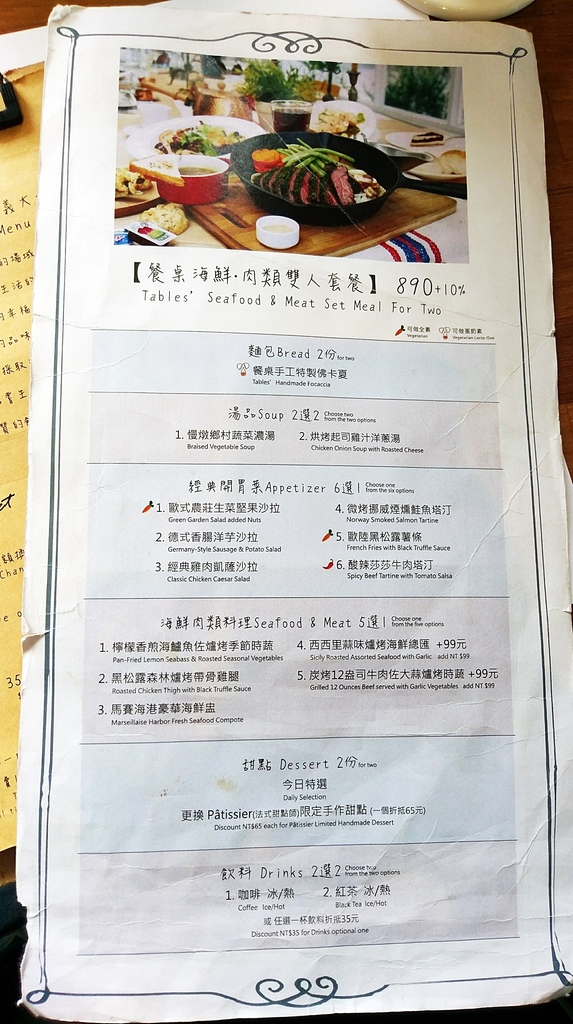 義大
Menu
【餐桌海鮮·肉類雙人套餐】 890+10%
Tables' Seafood & Meat Set Meal For Two
可做全素 Vegetarian 可做蛋奶素 Vegetarian Lacto-Ovo
麵包Bread 2份 for two
餐桌手工特製佛卡夏
Tables' Handmade Focaccia
湯品Soup 2選2 Choose two from the two options
1. 慢燉鄉村蔬菜濃湯 2. 烘烤起司雞汁洋蔥湯
Braised Vegetable Soup Chicken Onion Soup with Roasted Cheese
經典開胃菜Appetizer 6選1 Choose one from the six options
1. 歐式農莊生菜堅果沙拉 4. 微烤挪威煙燻鮭魚塔汀
Green Garden Salad added Nuts Norway Smoked Salmon Tartine
2. 德式香腸洋芋沙拉 5. 歐陸黑松露薯條
Germany-Style Sausage & Potato Salad French Fries with Black Truffle Sauce
3. 經典雞肉凱薩沙拉 6. 酸辣莎莎牛肉塔汀
Classic Chicken Caesar Salad Spicy Beef Tartine with Tomato Salsa
海鮮肉類料理Seafood & Meat 5選1 Choose one from the five options
1. 檸檬香煎海鱸魚佐爐烤季節時蔬 4. 西西里蒜味爐烤海鮮總匯 +99元
Pan-Fried Lemon Seabass & Roasted Seasonal Vegetables Sicily Roasted Assorted Seafood with Garlic add NT $99
2. 黑松露森林爐烤帶骨雞腿 5. 炭烤12盎司牛肉佐大蒜爐烤時蔬 +99元
Roasted Chicken Thigh with Black Truffle Sauce Grilled 12 Ounces Beef served with Garlic Vegetables add NT $99
3. 馬賽海港豪華海鮮盅
Marseillaise Harbor Fresh Seafood Compote
甜點 Dessert 2份 for two
今日特選
Daily Selection
更換 Pâtissier(法式甜點師)限定手作甜點 (一個折抵65元)
Discount NT$65 each for Pâtissier Limited Handmade Dessert
飲料 Drinks 2選2 Choose two from the two options
1. 咖啡 冰/熱 2. 紅茶 冰/熱
Coffee Ice/Hot Black Tea Ice/Hot
或 任選一杯飲料折抵35元
Discount NT$35 for Drinks optional one